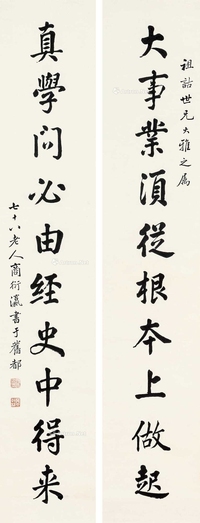 祖詒世兄大雅之属
大事業須從根本上做起
真學问必由经史中得来
七十八老人商衍瀛書于舊都